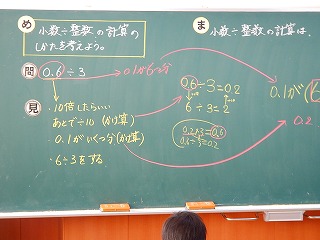 め
小数÷整数の計算の
しかたを考えよう。
問 0.6÷3
0.1が6つ分
見
・10倍したらいい
あとで÷10
・0.1がいくつ分(かけ算)
・6÷3をする
ま
小数÷整数の計算は、
0.6÷3=0.2
6÷3=2
0.2×3=0.6
0.6÷3=0.2
0.1が(6
0.2